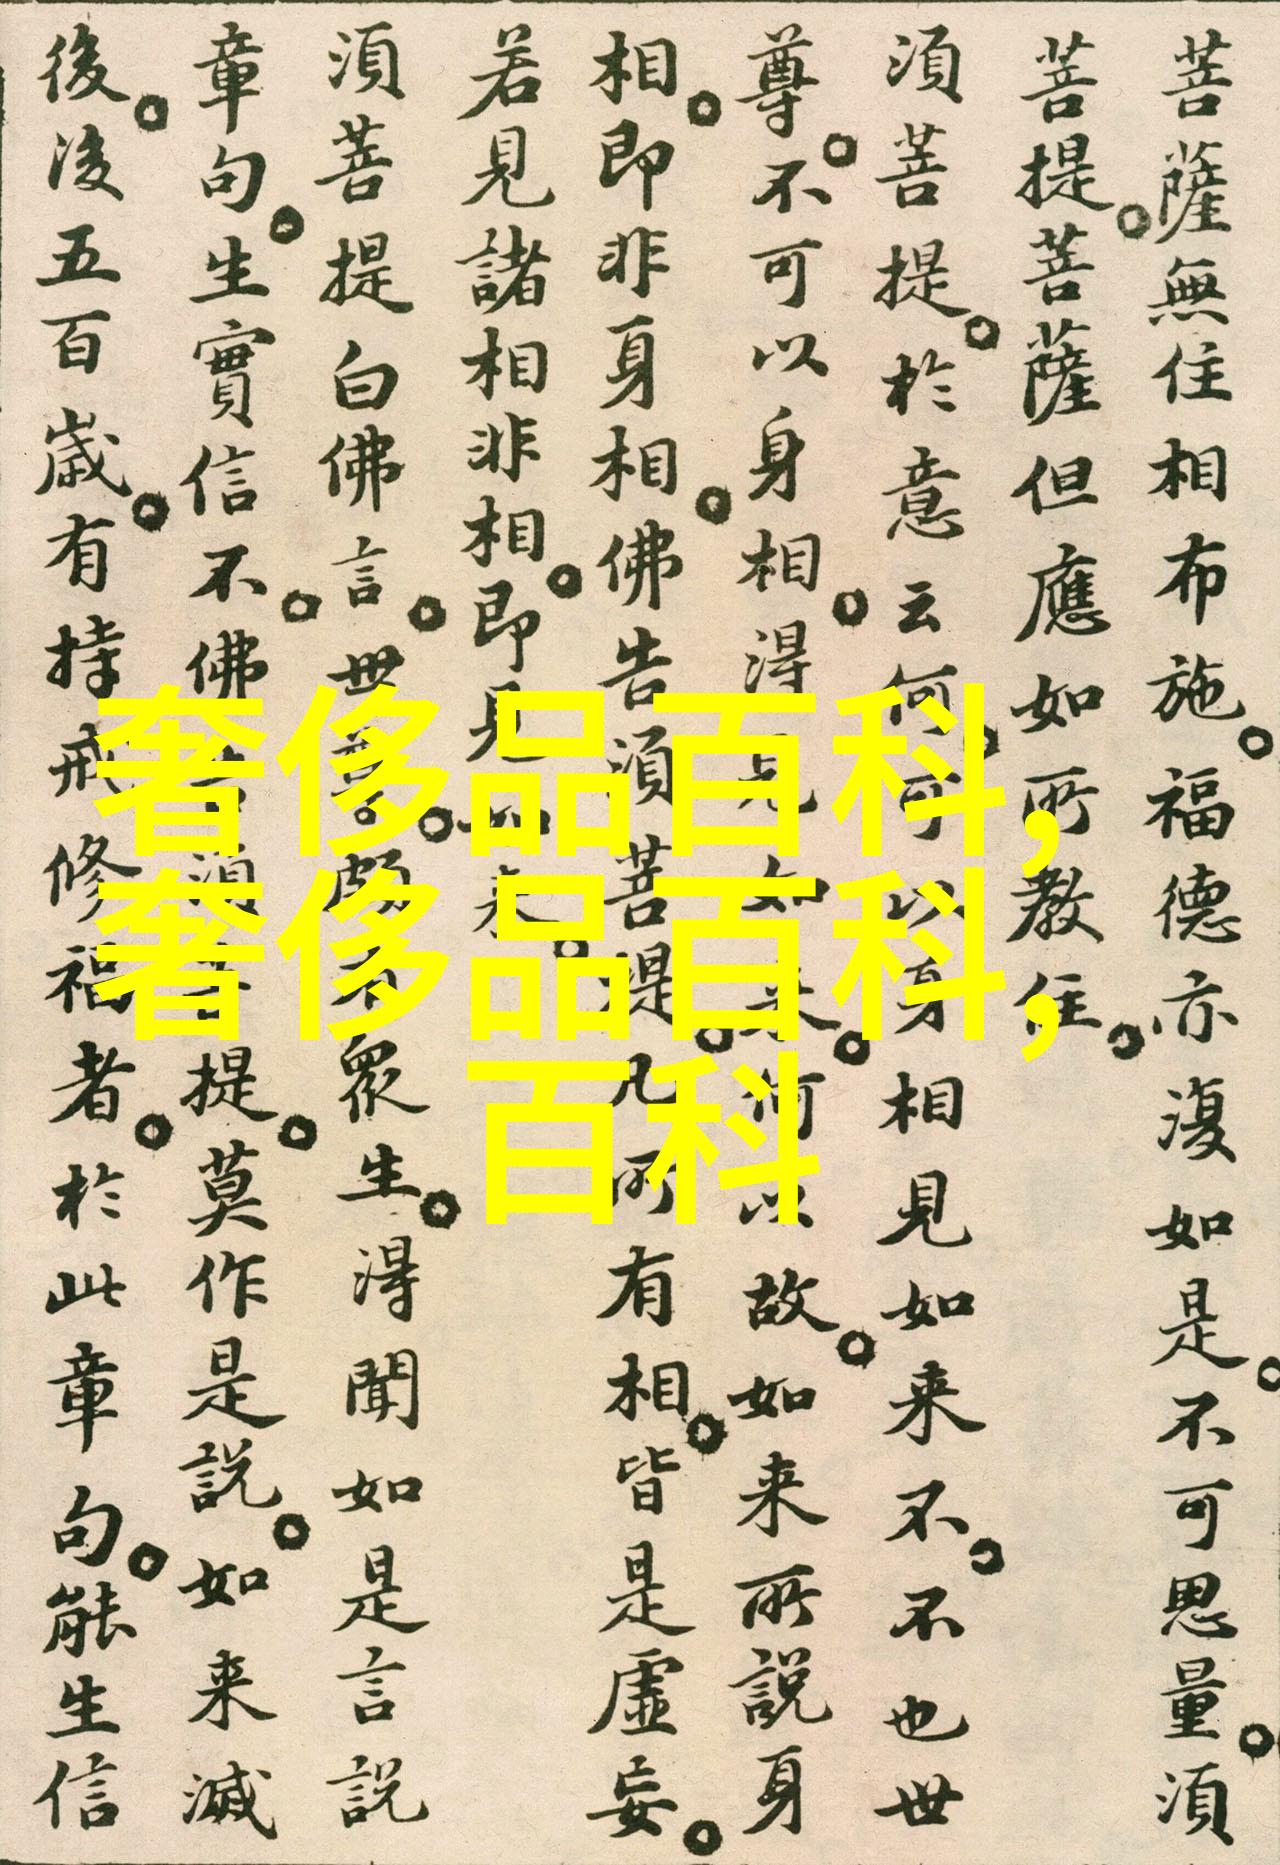 菩薩無住相布施。福德亦復如是。不可思量。須
菩提。菩薩但應如所教住。
須菩提。於意云何。可以身相見如来不。不也世
尊。不可以身相。得見如来。何以故。如来所說身
相。即非身相。佛告須菩提。凡所有相。皆是虛妄。
若見諸相非相。即見如来。
須菩提白佛言。世尊。頗有眾生。得聞如是言說
章句。生實信不。佛告須菩提。莫作是說。如来滅
後。後五百歲。有持戒修福者。於此章句。能生信
奢侈品百科,
奢侈品百科,
百科